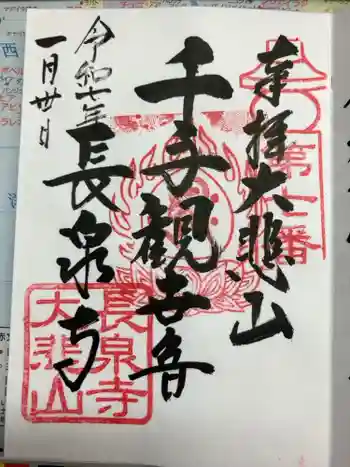 奉拝大悲山
第七番
千手観世音
長泉寺
令和七年
一月廿日
長泉寺
大悲山